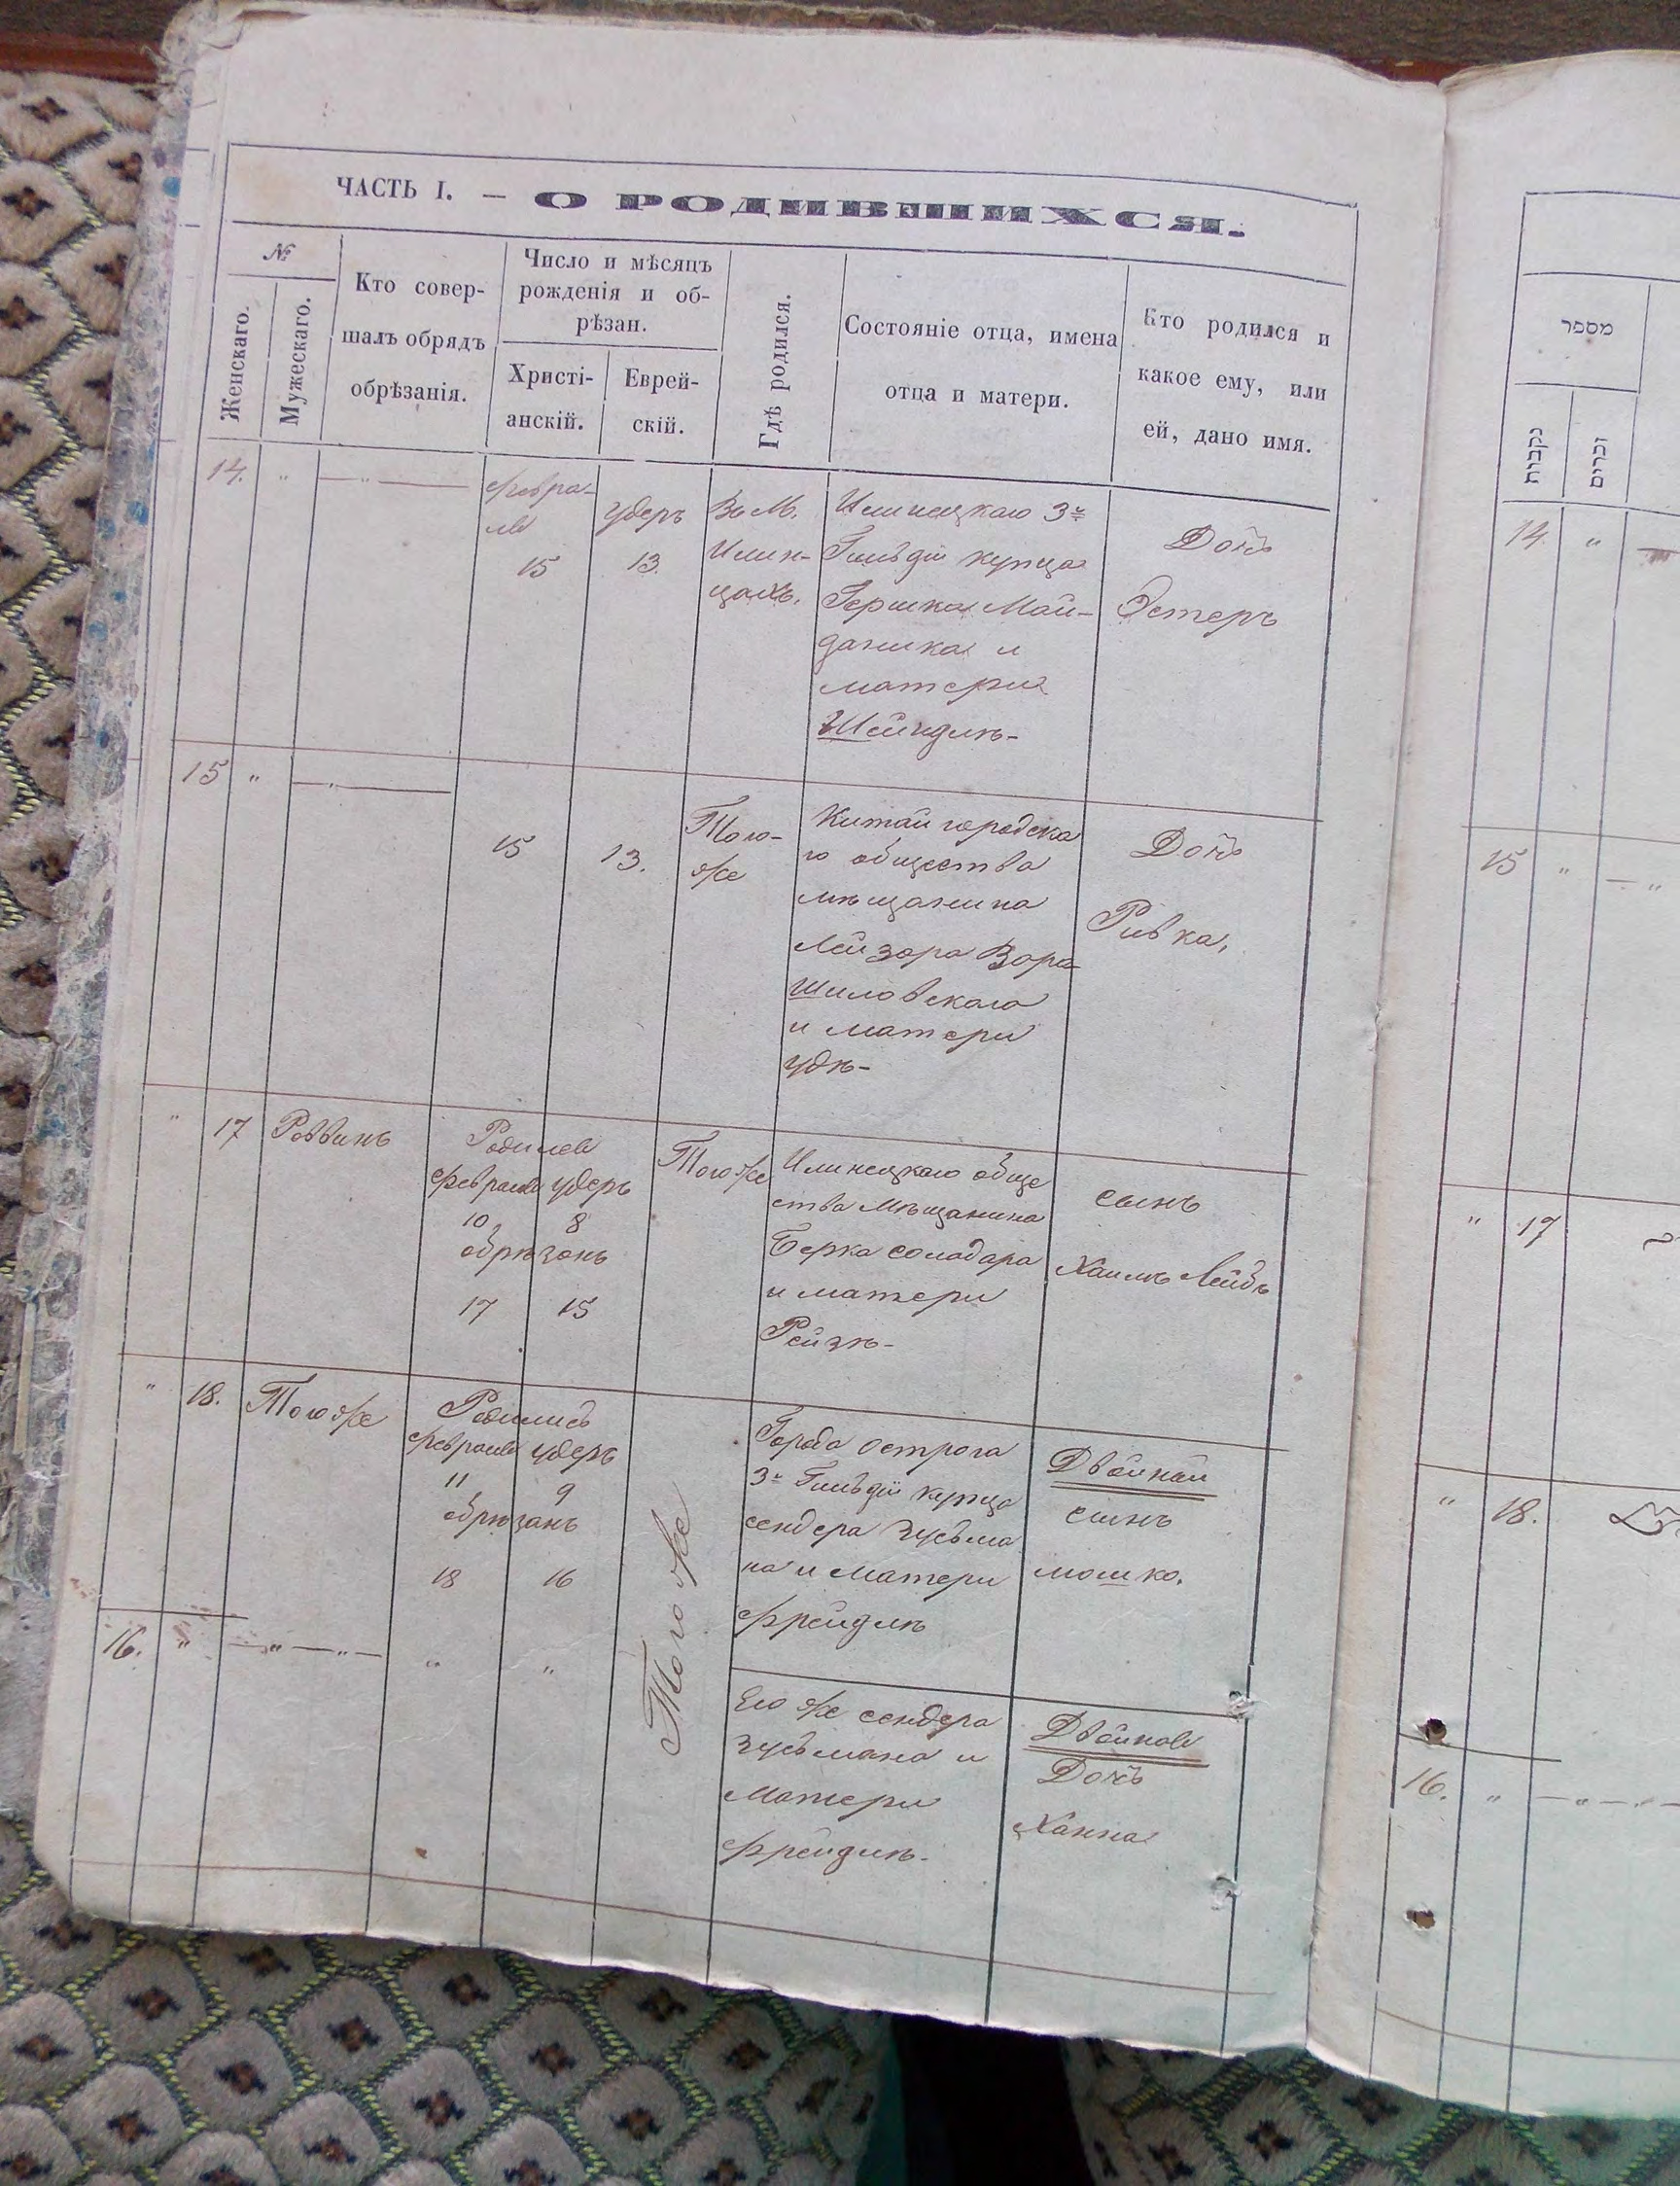 ЧАСТЬ I. — О РОДИВШИХСЯ.
№
Женскаго.
Мужескаго.
Кто совер-
шалъ обрядъ
обрѣзанія.
Число и мѣсяцъ
рожденія и об-
рѣзан.
Христі-
анскій.
Еврей-
скій.
Гдѣ родился.
Состояніе отца, имена
отца и матери.
Кто родился и
какое ему, или
ей, дано имя.
14. „ —„—
февра-
ля
15
удеръ
13.
Въ М.
Илин-
цахъ.
Илинецкаго 3й
Гильдіи купца
Гершка Май-
даника и
матери
Шейндлѣ-
Дочь
Эстеръ
15 „ —„—
15
13.
Того-
же
Китай городска
го общества
мѣщанина
Лейзора Воро-
шиловскаго
и матери
Удѣ-
Дочь
Ривка,
„ 17 Раввинъ
Родился
февраля удеръ
10, 8
обрѣзанъ
17 15
Того же
Илинецкаго обще
ства мѣщанина
Берка солодара
и матери
Рейзѣ-
сынъ
Хаимъ Лейбъ
„ 18. Того же
Родились
февраля удеръ
11 9
обрѣзанъ
18 16
Того же
Города острога
3й Гильдіи купца
сендера Зусьма
на и матери
фрейдлѣ
Двойнай
сынъ
мошко.
16. „ —„—„—
„ „
Его же сендера
Зусьмана и
матери
фрейдлѣ-
Двойная
Дочь
Ханна
מספר
נקבות
זכרים
14. „ —
15 „ —„
„ 17
„ 18.
16. „ —„—„—